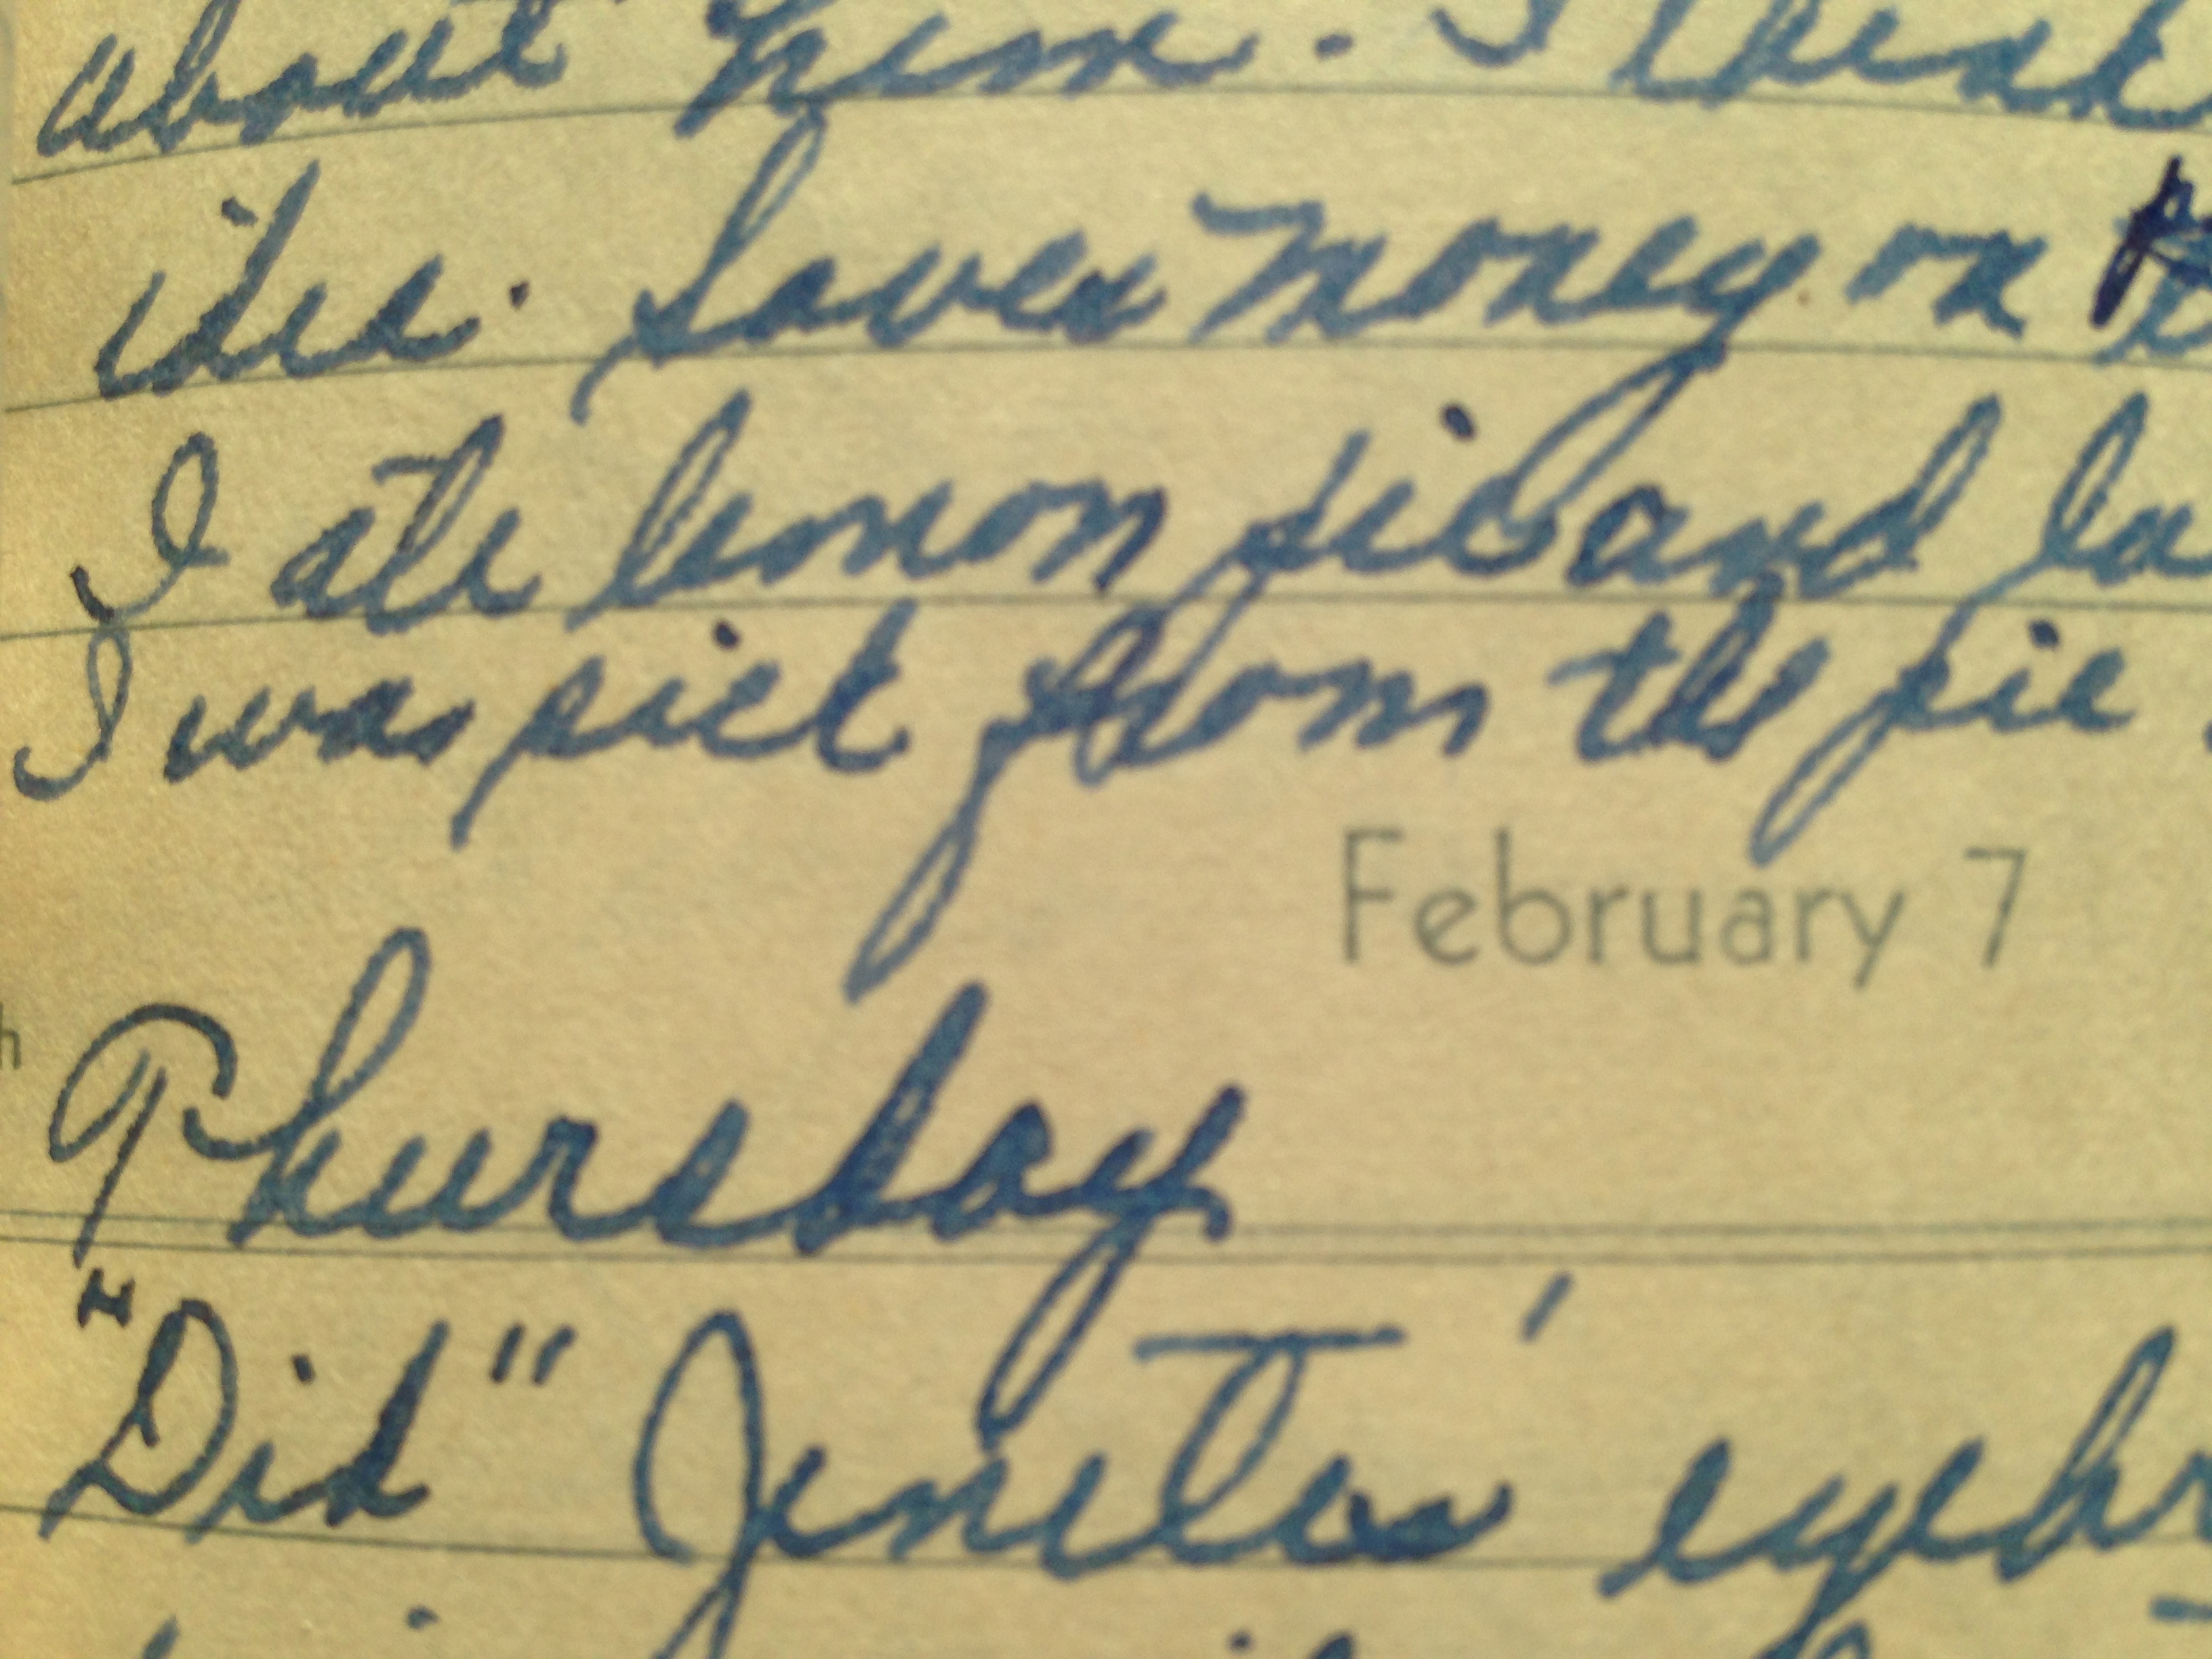 about him. I think
ides. Saves money on
I ate lemon pie and
I was sick from the pie
February 7
h
Thursday
"Did" Jeneta's eyebr